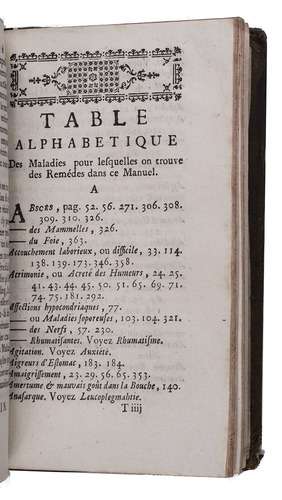 TABLE
ALPHABETIQUE
Des Maladies pour lesquelles on trouve
des Remédes dans ce Manuel.
A
ABSCES, pag. 52. 56. 271. 306. 308.
309. 310. 326.
—— des Mammelles, 326.
—— du Foie, 363.
Accouchement laborieux, ou difficile, 33. 114.
138. 139. 173. 346. 358.
Acrimonie, ou Acreté des Humeurs, 24. 25.
41. 43. 44. 45. 50. 51. 65. 69. 71.
74. 75. 181. 292.
Affections hypocondriaques, 77.
—— ou Maladies soporeuses, 103. 104. 321.
—— des Nerfs, 57. 230.
—— Rhumatisantes. Voyez Rhumatisme.
Agitation. Voyez Anxieté.
Aigreurs d'Estomac, 183. 184.
Amaigrissement, 23. 29. 56. 65. 353.
Amertume & mauvais goût dans la Bouche, 140.
Anasarque. Voyez Leucophlegmatie.
T iiij